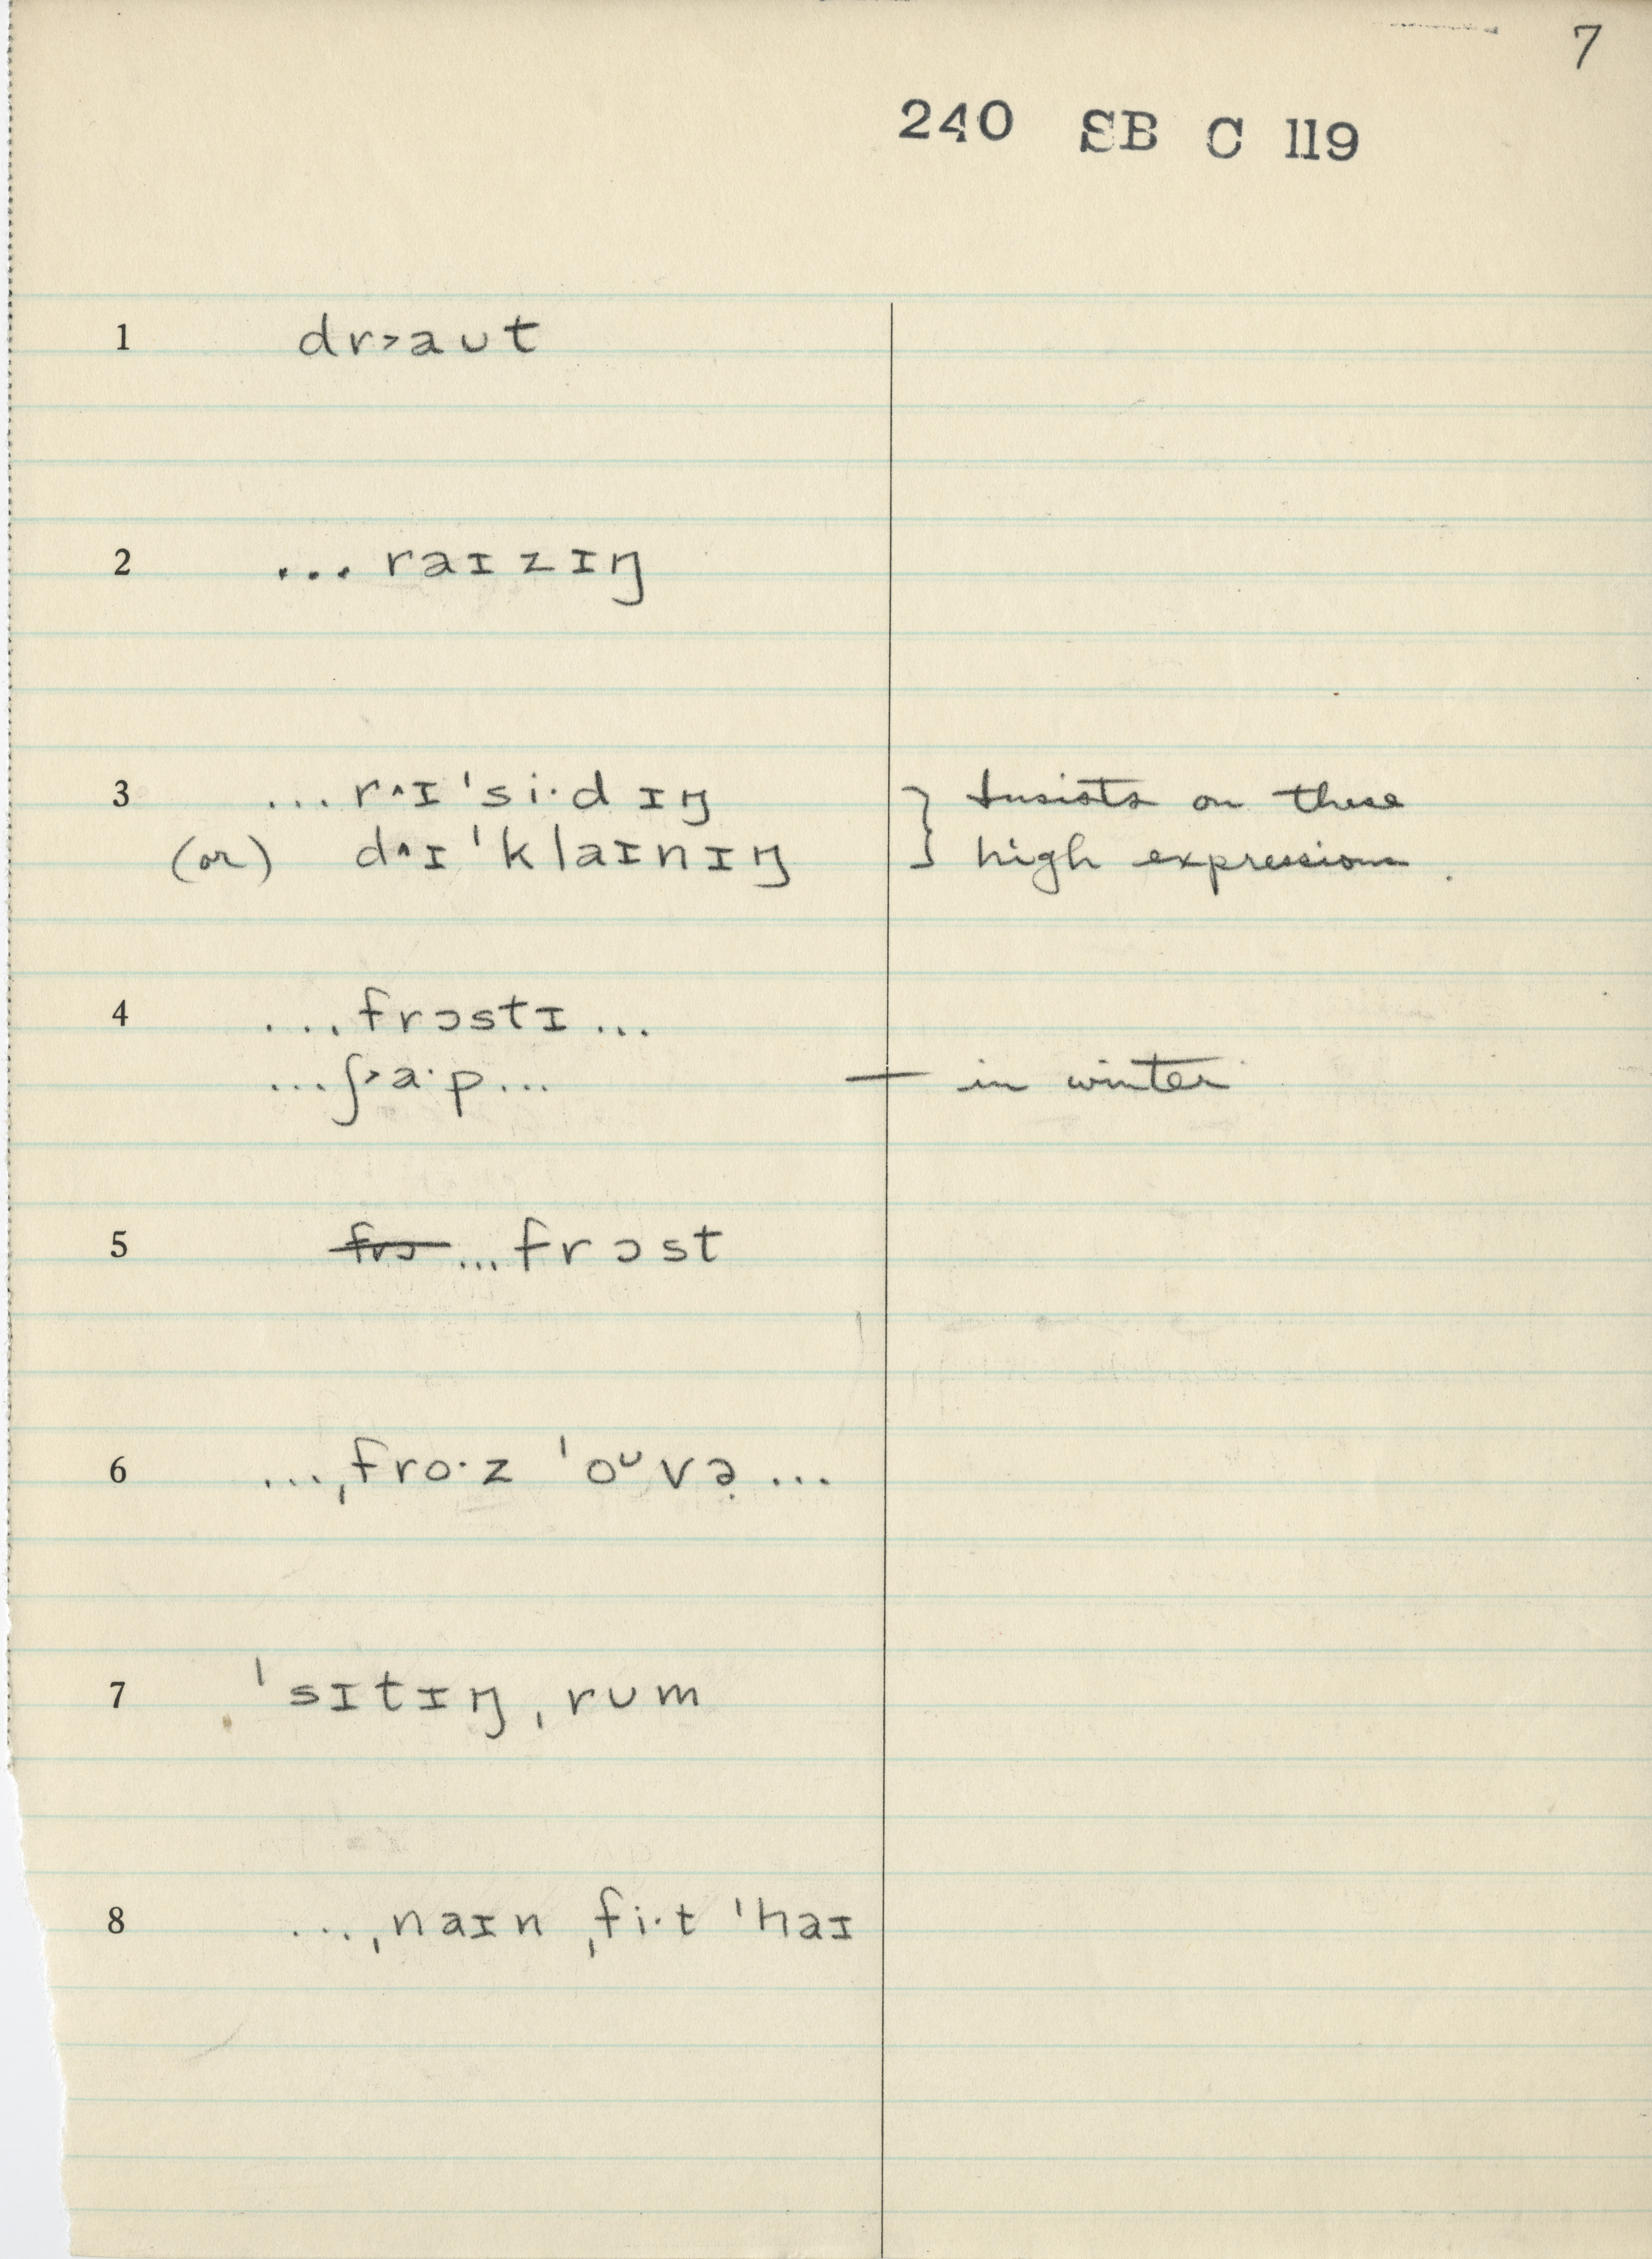 7
240 SB C 119
1 dr˃aʊt
2 ... raɪzɪŋ
3 ... r˄ɪˈsi·dɪŋ } Insists on these
(or) d˄ɪˈklaɪnɪŋ high expressions.
4 ... frɔstɪ ...
... ʃ˃a·p ... — in winter
5 frɔ ... frɔst
6 ... ˌfro·z ˈoᶷvə̣ ...
7 ˈsɪtɪŋ ˌrʊm
8 ... ˌnaɪn ˌfi·t ˈhaɪ